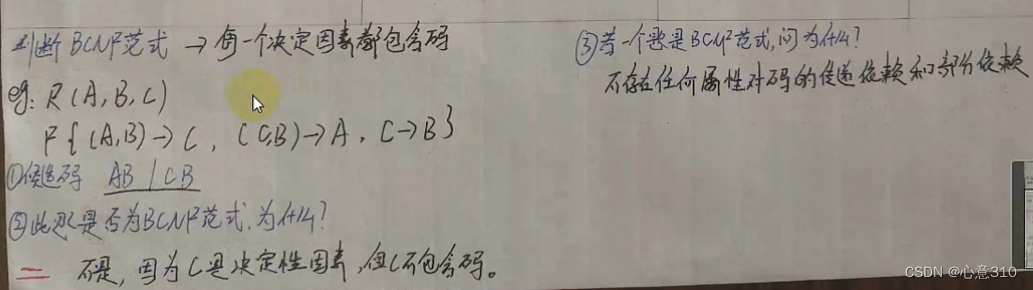 判断BCNF范式 → 每一个决定因素都包含码
eg: R(A,B,C)
F{(A,B)→C, (C,B)→A, C→B}
①候选码 AB / CB
②此题是否为BCNF范式,为什么?
二 不是, 因为C是决定性因素,但C不包含码。
③若一个表是BCNF范式,问为什么?
不存在任何属性对码的传递依赖和部分依赖
CSDN @心意310